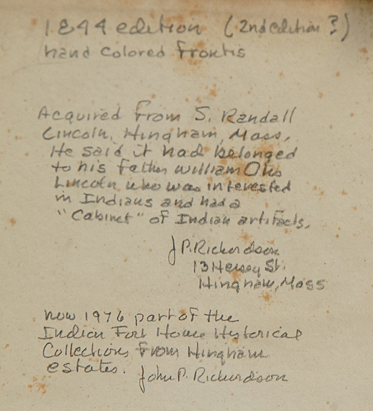 1844 edition (2nd edition?)
hand colored frontis
Acquired from S. Randall
Lincoln, Hingham, Mass.
He said it had belonged
to his father William Otis
Lincoln, who was interested
in Indians and had a
"Cabinet" of Indian artifacts.
J.P. Richardson
13 Hersey St.
Hingham, Mass
now 1976 part of the
Indian Fort House Historical
Collections from Hingham
estates. John P. Richardson